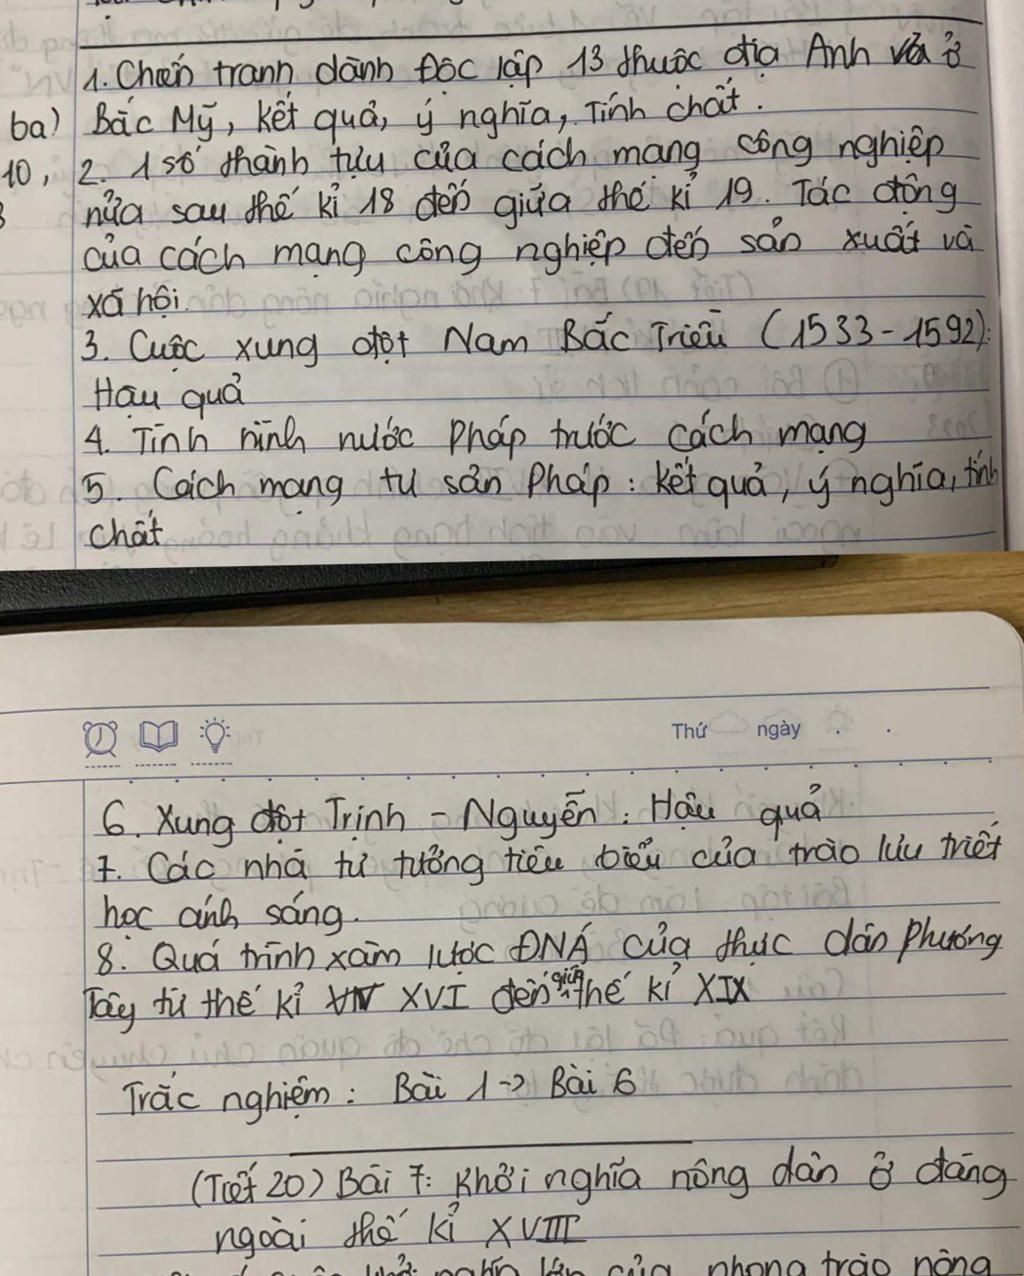 1. Chiến tranh dành Độc lập 13 thuộc địa Anh ở
6a) Bắc Mỹ, kết quả, ý nghĩa, Tính chất.
10, 2. 1 số thành tựu của cách mạng công nghiệp
nửa sau thế kỉ 18 đến giữa thế kỉ 19. Tác động
của cách mạng công nghiệp đến sản xuất và
xã hội.
3. Cuộc xung đột Nam Bắc Triều (1533-1592):
Hậu quả
4. Tình hình nước Pháp trước cách mạng
5. Cách mạng tư sản Pháp: kết quả, ý nghĩa, tính
chất
Thứ ngày
6. Xung đột Trịnh - Nguyễn: Hậu quả
7. Các nhà tư tưởng tiêu biểu của trào lưu triết
học ánh sáng.
8. Quá trình xâm lược ĐNÁ của thực dân Phương
Tây từ thế kỉ XVI đến giữa thế kỉ XIX
Trắc nghiệm: Bài 1 -> Bài 6
(Tiết 20) Bài 7: Khởi nghĩa nông dân ở đàng
ngoài thế kỉ XVIII
của phong trào nông